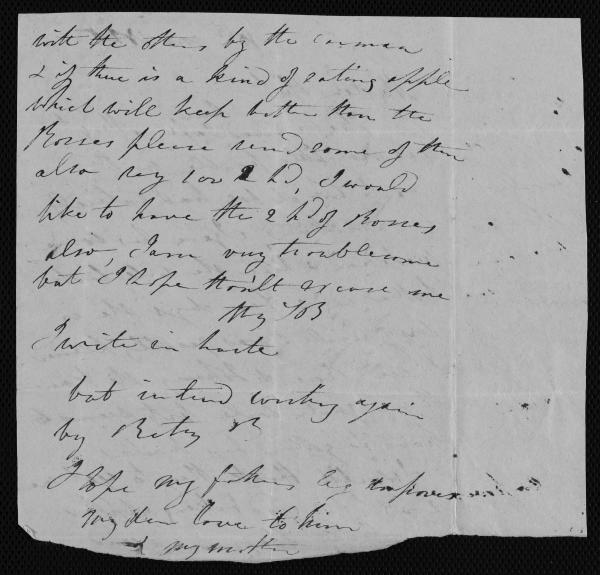 with the others by the carman
& if there is a kind of eating apple
which will keep better than the
Rosses please send some of them
also say 1 or 2 hd, I would
like to have the 2 hd of Rosses
also, I am very troublesome
but I hope thou'lt excuse me
thy
I write in haste
but intend writing again
by Betsy R
I hope my fathers leg improves
my dear love to him
& my mother